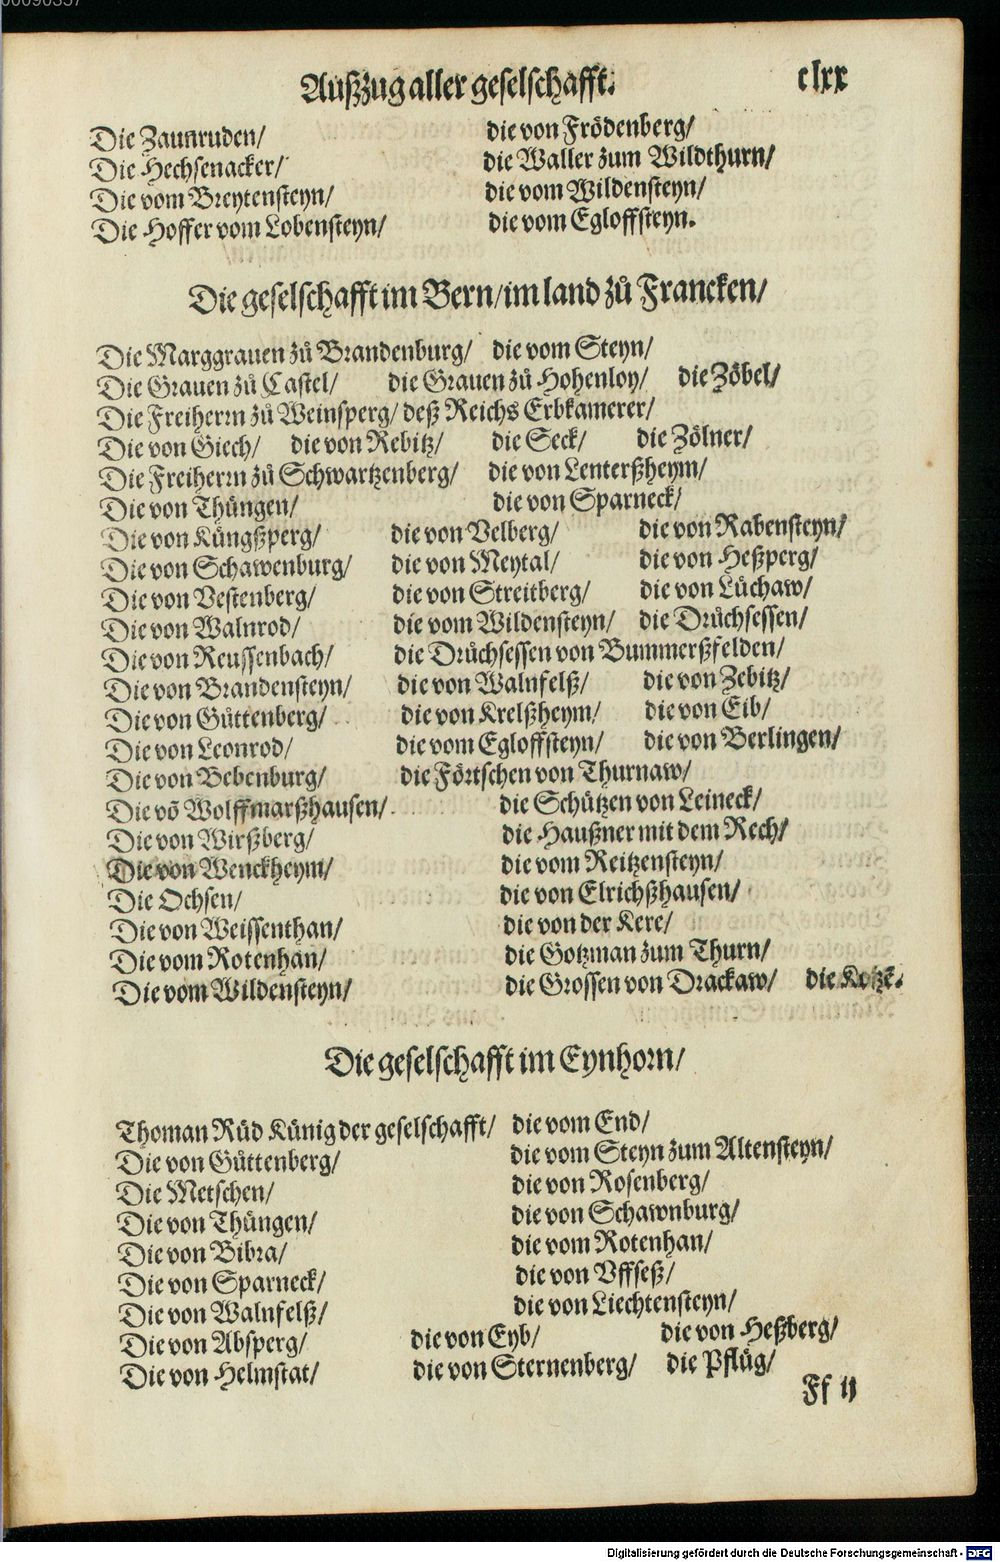 Außzug aller geselschafft. clxx
Die Zaunruden/ die von Frödenberg/
Die Hechsenacker/ die Waller zum Wildthurn/
Die vom Breytensteyn/ die vom Wildensteyn/
Die Hoffer vom Lobensteyn/ die vom Egloffsteyn.
Die geselschafft im Bern/im land zů Francken/
Die Marggrauen zů Brandenburg/ die vom Steyn/
Die Grauen zů Castel/ die Grauen zů Hohenloy/ die Zöbel/
Die Freiherrn zů Weinsperg/ deß Reichs Erbkamerer/
Die von Giech/ die von Rebitz/ die Seck/ die Zölner/
Die Freiherrn zů Schwartzenberg/ die von Lenterßheym/
Die von Thüngen/ die von Sparneck/
Die von Küngßperg/ die von Velberg/ die von Rabensteyn/
Die von Schawenburg/ die von Meytal/ die von Heßperg/
Die von Vestenberg/ die von Streitberg/ die von Lüchaw/
Die von Walnrod/ die vom Wildensteyn/ die Drůchsessen/
Die von Reussenbach/ die Drůchsessen von Bummerßfelden/
Die von Brandensteyn/ die von Walnfelß/ die von Zebitz/
Die von Güttenberg/ die von Krelßheym/ die von Eib/
Die von Leonrod/ die vom Egloffsteyn/ die von Berlingen/
Die von Bebenburg/ die Förtschen von Thurnaw/
Die võ Wolffmarßhausen/ die Schützen von Leineck/
Die von Wirßberg/ die Haußner mit dem Rech/
Die von Wenckheym/ die vom Reitzensteyn/
Die Ochsen/ die von Elrichßhausen/
Die von Weissenthan/ die von der Kere/
Die vom Rotenhan/ die Gotzman zum Thurn/
Die vom Wildensteyn/ die Grossen von Drackaw/ die Kotzē.
Die geselschafft im Eynhorn/
Thoman Rüd Künig der geselschafft/ die vom End/
Die von Güttenberg/ die vom Steyn zum Altensteyn/
Die Metschen/ die von Rosenberg/
Die von Thüngen/ die von Schawnburg/
Die von Bibra/ die vom Rotenhan/
Die von Sparneck/ die von Vffseß/
Die von Walnfelß/ die von Liechtensteyn/
Die von Absperg/ die von Eyb/ die von Heßberg/
Die von Helmstat/ die von Sternenberg/ die Pflüg/
Ff ij
Digitalisierung gefördert durch die Deutsche Forschungsgemeinschaft - DFG